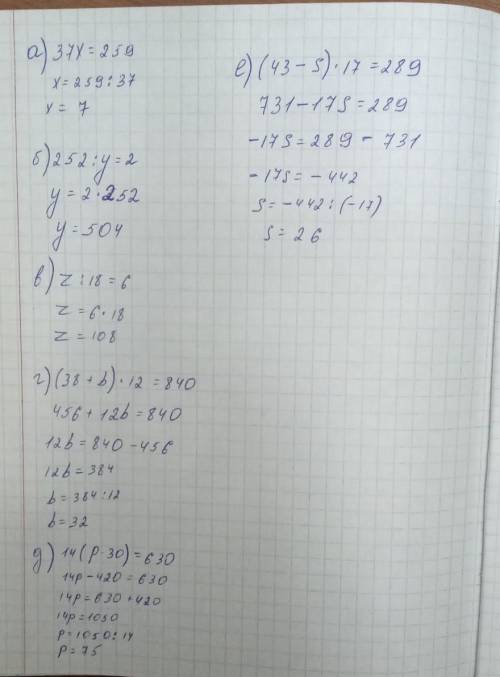 а) 37x = 259
x = 259 : 37
x = 7
б) 252 : y = 2
y = 2 · 252
y = 504
в) z : 18 = 6
z = 6 · 18
z = 108
г) (38 + b) · 12 = 840
456 + 12b = 840
12b = 840 - 456
12b = 384
b = 384 : 12
b = 32
д) 14(p - 30) = 630
14p - 420 = 630
14p = 630 + 420
14p = 1050
p = 1050 : 14
p = 75
е) (43 - s) · 17 = 289
731 - 17s = 289
-17s = 289 - 731
-17s = -442
s = -442 : (-17)
s = 26